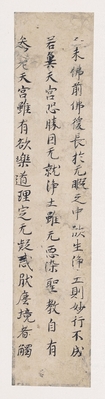 未佛前佛後長於无暇之中欲生淨土則妙行不成
若冀天宮恐勝因无就淨土雖无惡染聖教自有
天宮雖有欲樂道理定无疑惑厭塵境者觸